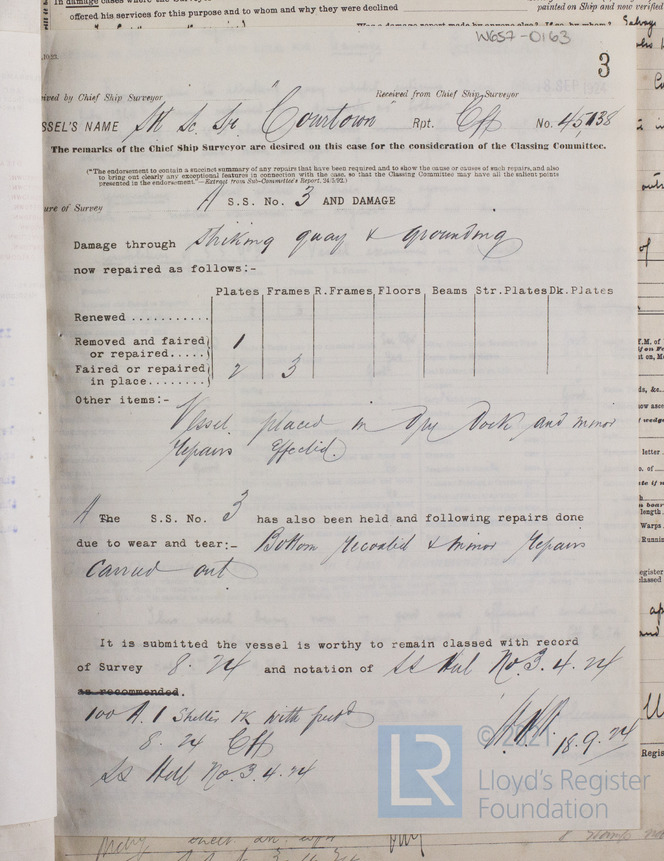 In damage cases where the Surveyor
offered his services for this purpose and to whom and why they were declined
painted on Ship and now verified
W657-0163
3
Received by Chief Ship Surveyor Received from Chief Ship Surveyor
SSEL'S NAME "Courtown" Rpt. Cff No. 45,138
The remarks of the Chief Ship Surveyor are desired on this case for the consideration of the Classing Committee.
(*The endorsement to contain a succinct summary of any repairs that have been required and to show the cause or causes of such repairs, and also
to bring out clearly any exceptional features in connection with the case, so that the Classing Committee may have all the salient points
presented in the endorsement."—Extract from Sub-Committee's Report, 24/5/92.)
ure of Survey A S.S. No. 3 AND DAMAGE
Damage through striking quay & grounding
now repaired as follows:-
Plates Frames R.Frames Floors Beams Str.Plates Dk.Plates
Renewed ...........
Removed and faired
or repaired..... 1
Faired or repaired
in place........ 2 3
Other items:-
Vessel placed in Dry Dock and minor
repairs effected.
A The S.S. No. 3 has also been held and following repairs done
due to wear and tear:- Bottom recoated & minor repairs
carried out
It is submitted the vessel is worthy to remain classed with record
of Survey 8.24 and notation of SS Hul No.3.4.24
as recommended.
100 A.1 Shelter DK with freebd
8.24 Cff
18.9.24
SS Hul No.3.4.24
© 2021
LR
Lloyd's Register
Foundation